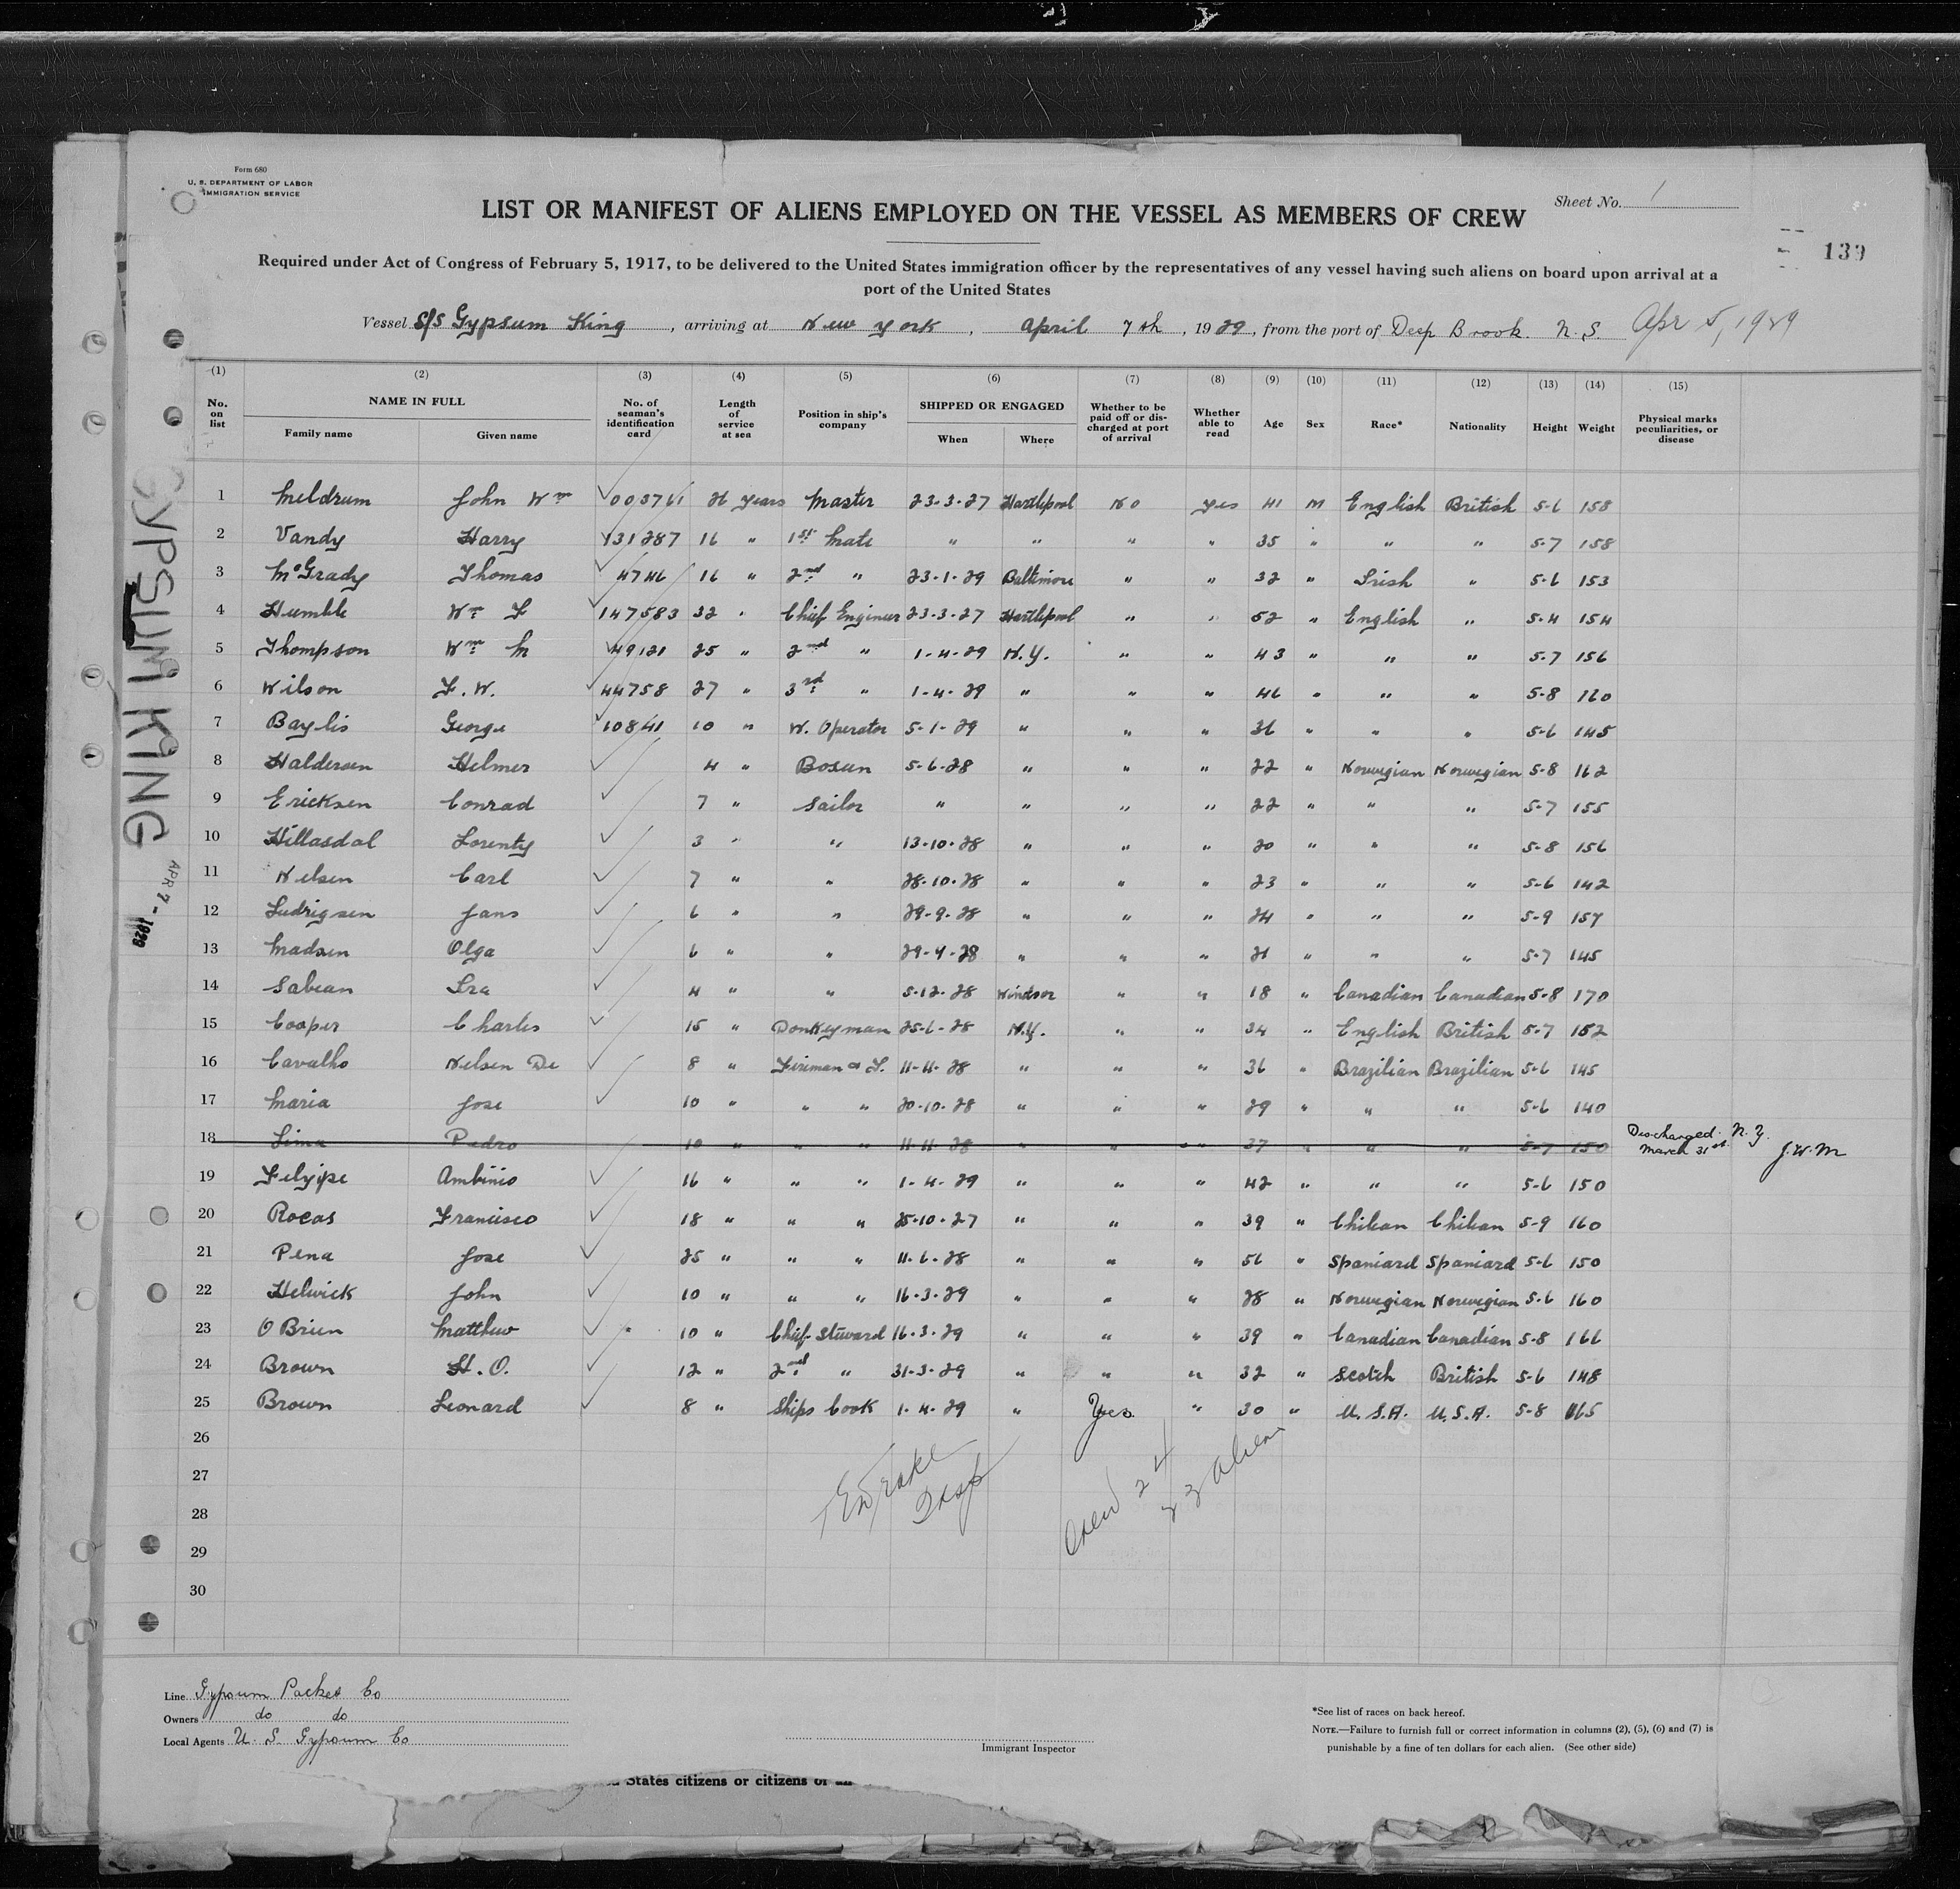 Form 680
U. S. DEPARTMENT OF LABOR
IMMIGRATION SERVICE
Sheet No. 1
LIST OR MANIFEST OF ALIENS EMPLOYED ON THE VESSEL AS MEMBERS OF CREW
139
Required under Act of Congress of February 5, 1917, to be delivered to the United States immigration officer by the representatives of any vessel having such aliens on board upon arrival at a
port of the United States
Vessel S/S Gypsum King, arriving at New York, April 7th, 1929, from the port of Deep Brook. N.S. Apr 5, 1929
(1) (2) (3) (4) (5) (6) (7) (8) (9) (10) (11) (12) (13) (14) (15)
No. on list NAME IN FULL Family name Given name No. of seaman's identification card Length of service at sea Position in ship's company SHIPPED OR ENGAGED When Where Whether to be paid off or discharged at port of arrival Whether able to read Age Sex Race* Nationality Height Weight Physical marks peculiarities, or disease
1 Meldrum John Wm 26 years Master 23-3-27 Hartlepool No Yes 41 M English British 5-6 158
2 Vandy Harry 131287 16 " 1st Mate " " " " 35 " " " 5-7 158
3 McGrady Thomas 4746 16 " 2nd " 23-1-29 Baltimore " " 32 " Irish " 5-6 153
4 Humble Wm F 147583 32 " Chief Engineer 23-3-27 Hartlepool " " 52 " English " 5-4 154
5 Thompson Wm M 49121 25 " 2nd " 1-4-29 N.Y. " " 43 " " " 5-7 156
6 Wilson F.W. 44758 27 " 3rd " 1-4-29 " " " 46 " " " 5-8 160
7 Baylis George 10841 10 " W. Operator 5-1-29 " " " 36 " " " 5-6 145
8 Haldersen Helmer 4 " Bosun 5-6-28 " " " 22 " Norwegian Norwegian 5-8 162
9 Ericksen Conrad 7 " Sailor " " " " 22 " " " 5-7 155
10 Hillasdal Lorenty 3 " " 13-10-28 " " " 20 " " " 5-8 156
11 Nelsen Carl 7 " " 28-10-28 " " " 23 " " " 5-6 142
12 Ludrigsen Jans 6 " " 29-9-28 " " " 24 " " " 5-9 157
13 Madsen Olga 6 " " 29-9-28 " " " 21 " " " 5-7 145
14 Sabean Ira 4 " " 5-12-28 Windsor " " 18 " Canadian Canadian 5-8 170
15 Cooper Charles 15 " Donkeyman 25-6-28 N.Y. " " 34 " English British 5-7 152
16 Cavalho Nelson De 8 " Fireman & T. 11-11-28 " " " 36 " Brazilian Brazilian 5-6 145
17 Maria Jose 10 " " " 20-10-28 " " " 29 " " " 5-6 140
18 Lima Pedro 10 " " " 11-11-28 " " " 37 " " " 5-7 150 Discharged N.Y. March 31st J.W.M
19 Felyipe Ambinio 16 " " " 1-4-29 " " " 42 " " " 5-6 150
20 Rocas Francisco 18 " " " 25-10-27 " " " 39 " Chilean Chilean 5-9 160
21 Pena Jose 25 " " " 11-6-28 " " " 56 " Spaniard Spaniard 5-6 150
22 Helwick John 10 " " " 16-3-29 " " " 28 " Norwegian Norwegian 5-6 160
23 O Brien Matthew 10 " Chief Steward 16-3-29 " " " 39 " Canadian Canadian 5-8 166
24 Brown H.O. 12 " 2nd " 31-3-29 " " " 32 " Scotch British 5-6 148
25 Brown Leonard 8 " Ships Cook 1-4-29 " Yes " 30 " U.S.A. U.S.A. 5-8 165
26
27
28
29
30
Crew 24
23 Aliens
GYPSUM KING
APR 7 - 1929
Line Gypsum Packet Co
Owners do do
Local Agents U. S. Gypsum Co
Immigrant Inspector
*See list of races on back hereof.
NOTE.—Failure to furnish full or correct information in columns (2), (5), (6) and (7) is
punishable by a fine of ten dollars for each alien. (See other side)
States citizens or citizens of